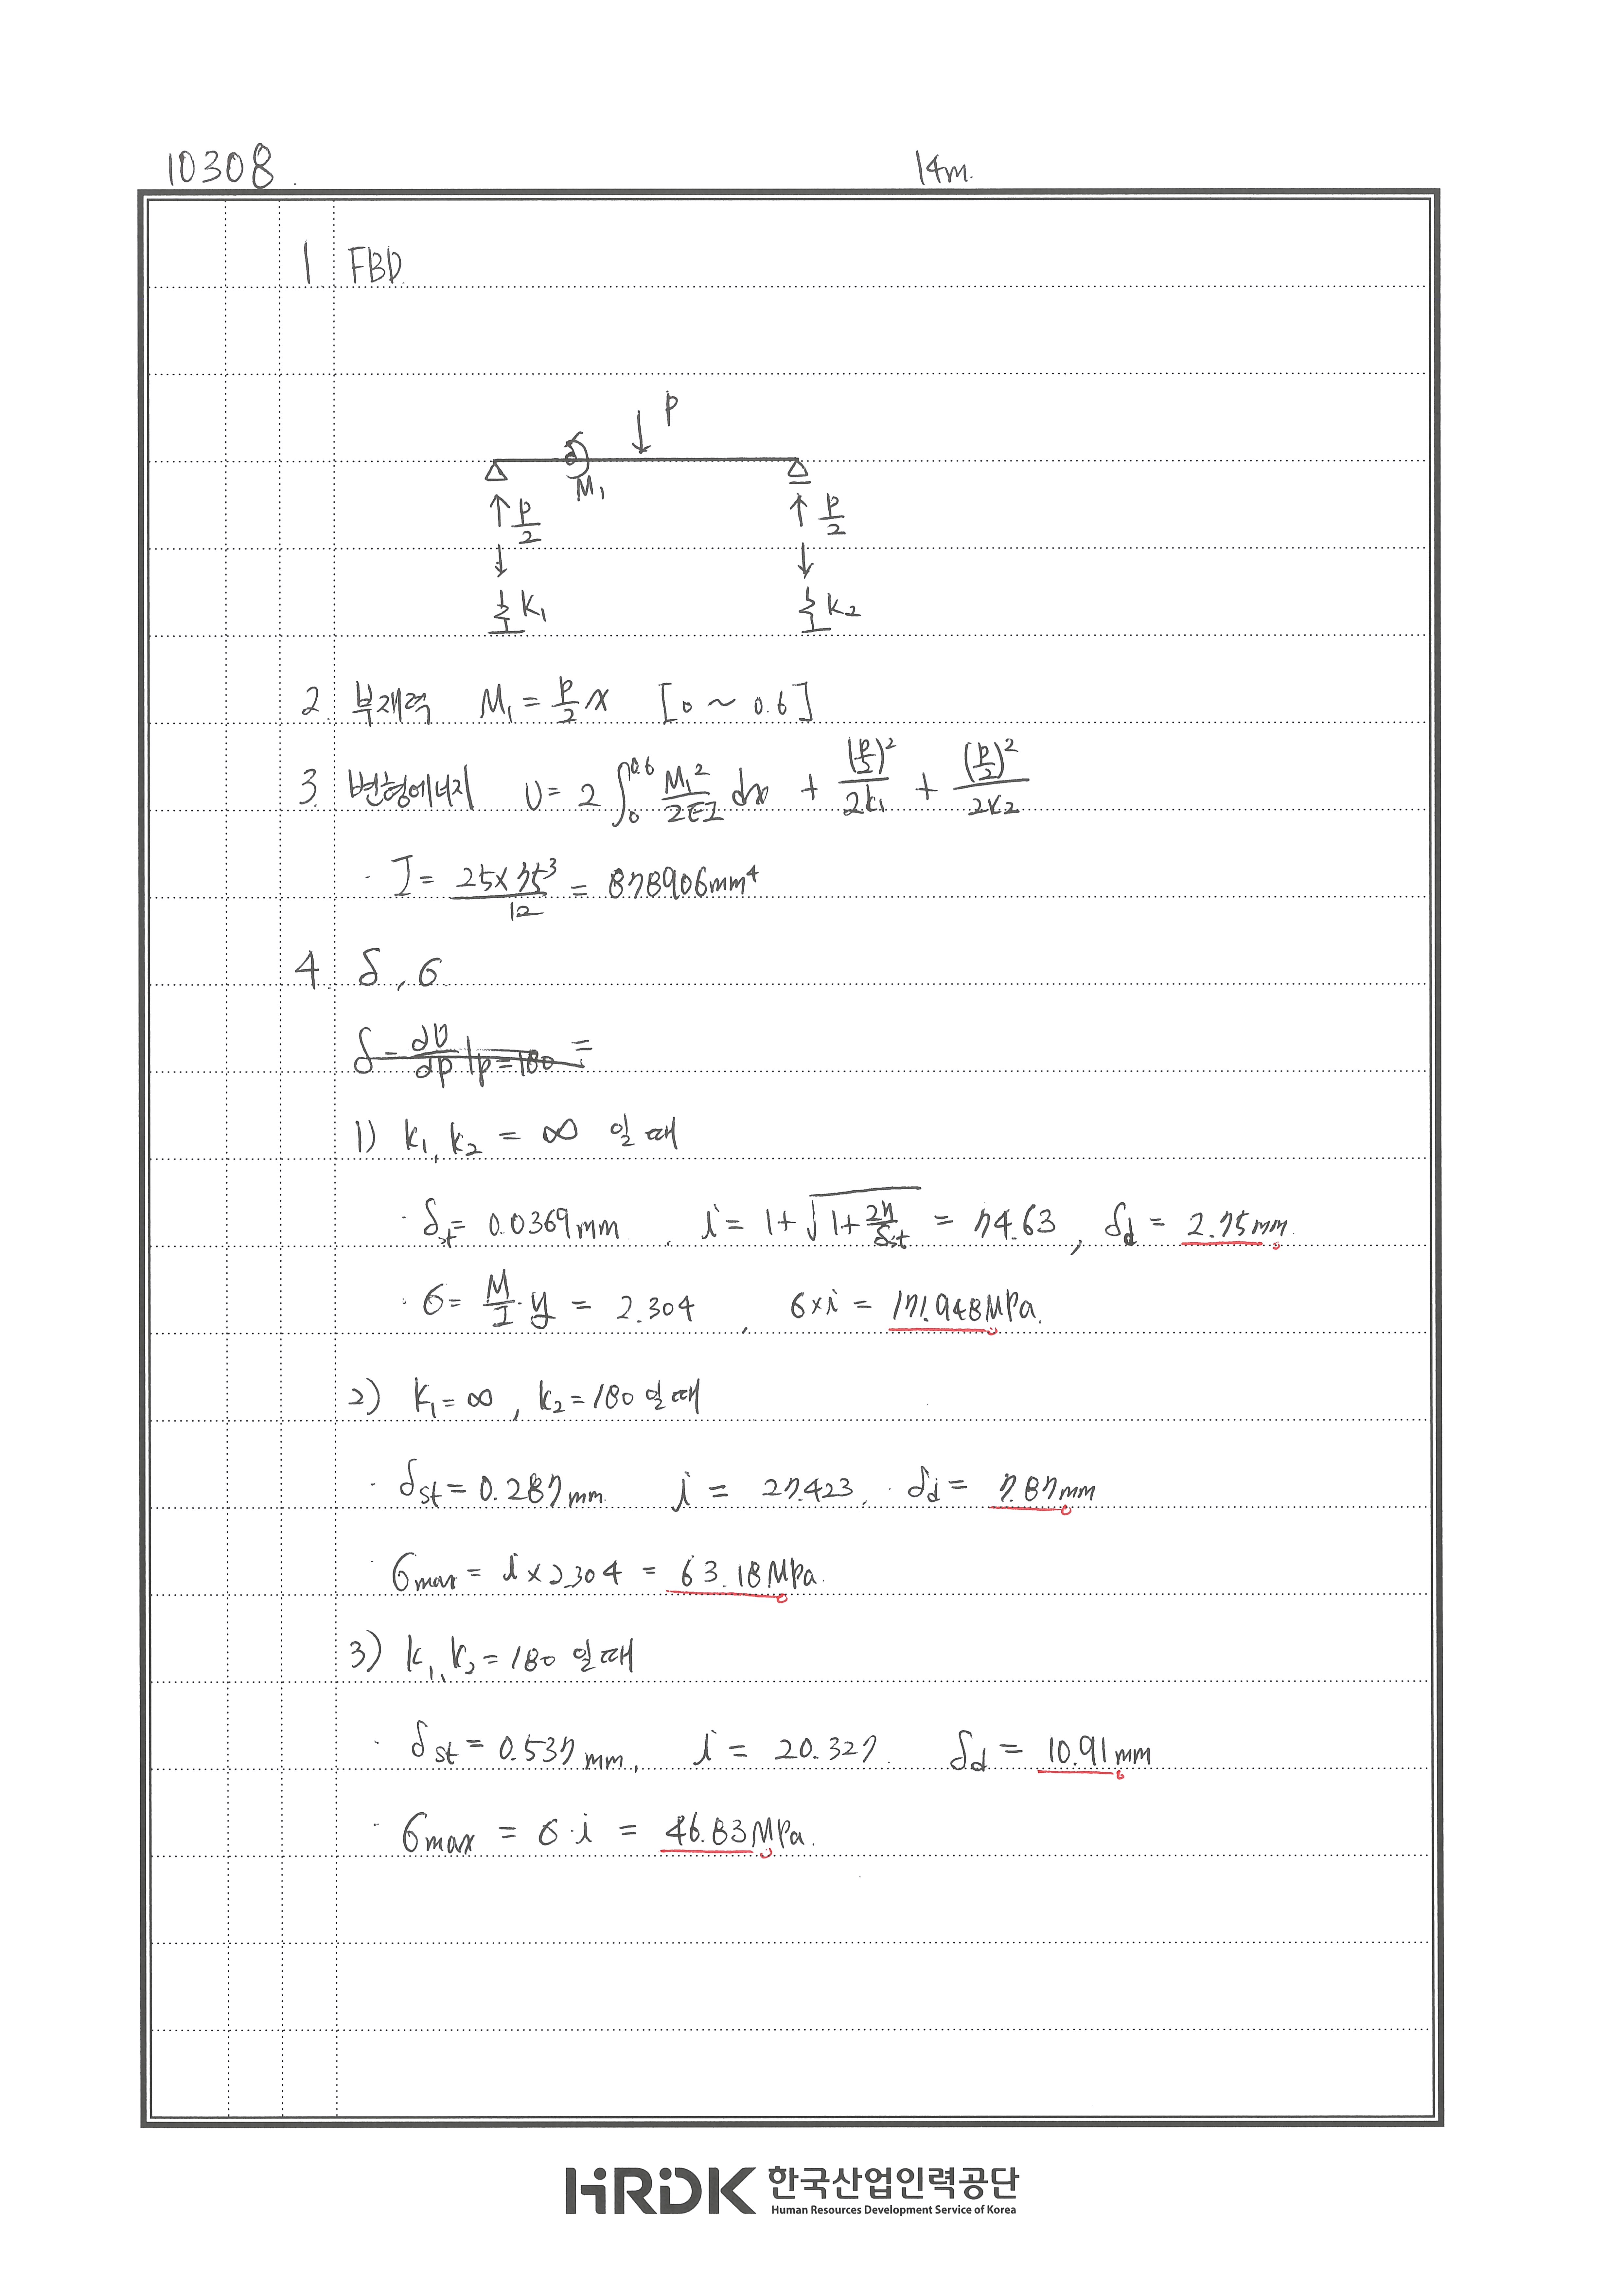 10308.
14m.
1 FBD.
P
M₁
P/2 P/2
k₁ k₂
2 부재력 M₁ = P/2 x [0 ~ 0.6]
3. 변형에너지 U = 2 ∫₀^0.6 M₁²/2EI dx + (P/2)²/2k₁ + (P/2)²/2k₂
· I = 25×75³/12 = 878906mm⁴
4. δ, σ
δ = ∂U/∂P | P=180 =
1) k₁, k₂ = ∞ 일 때
· δst = 0.0369mm , i = 1+√(1+2h/δst) = 74.63 , δd = 2.75mm.
· σ = M/I · y = 2.304 , σ×i = 171.948MPa.
2) k₁ = ∞ , k₂ = 180 일 때
· δst = 0.287mm. i = 27.423. · δd = 7.87mm
· σmax = i × 2.304 = 63.18MPa.
3) k₁, k₂ = 180 일 때
· δst = 0.537mm. i = 20.327. δd = 10.91mm
· σmax = σ·i = 46.83MPa.
HRDK 한국산업인력공단
Human Resources Development Service of Korea